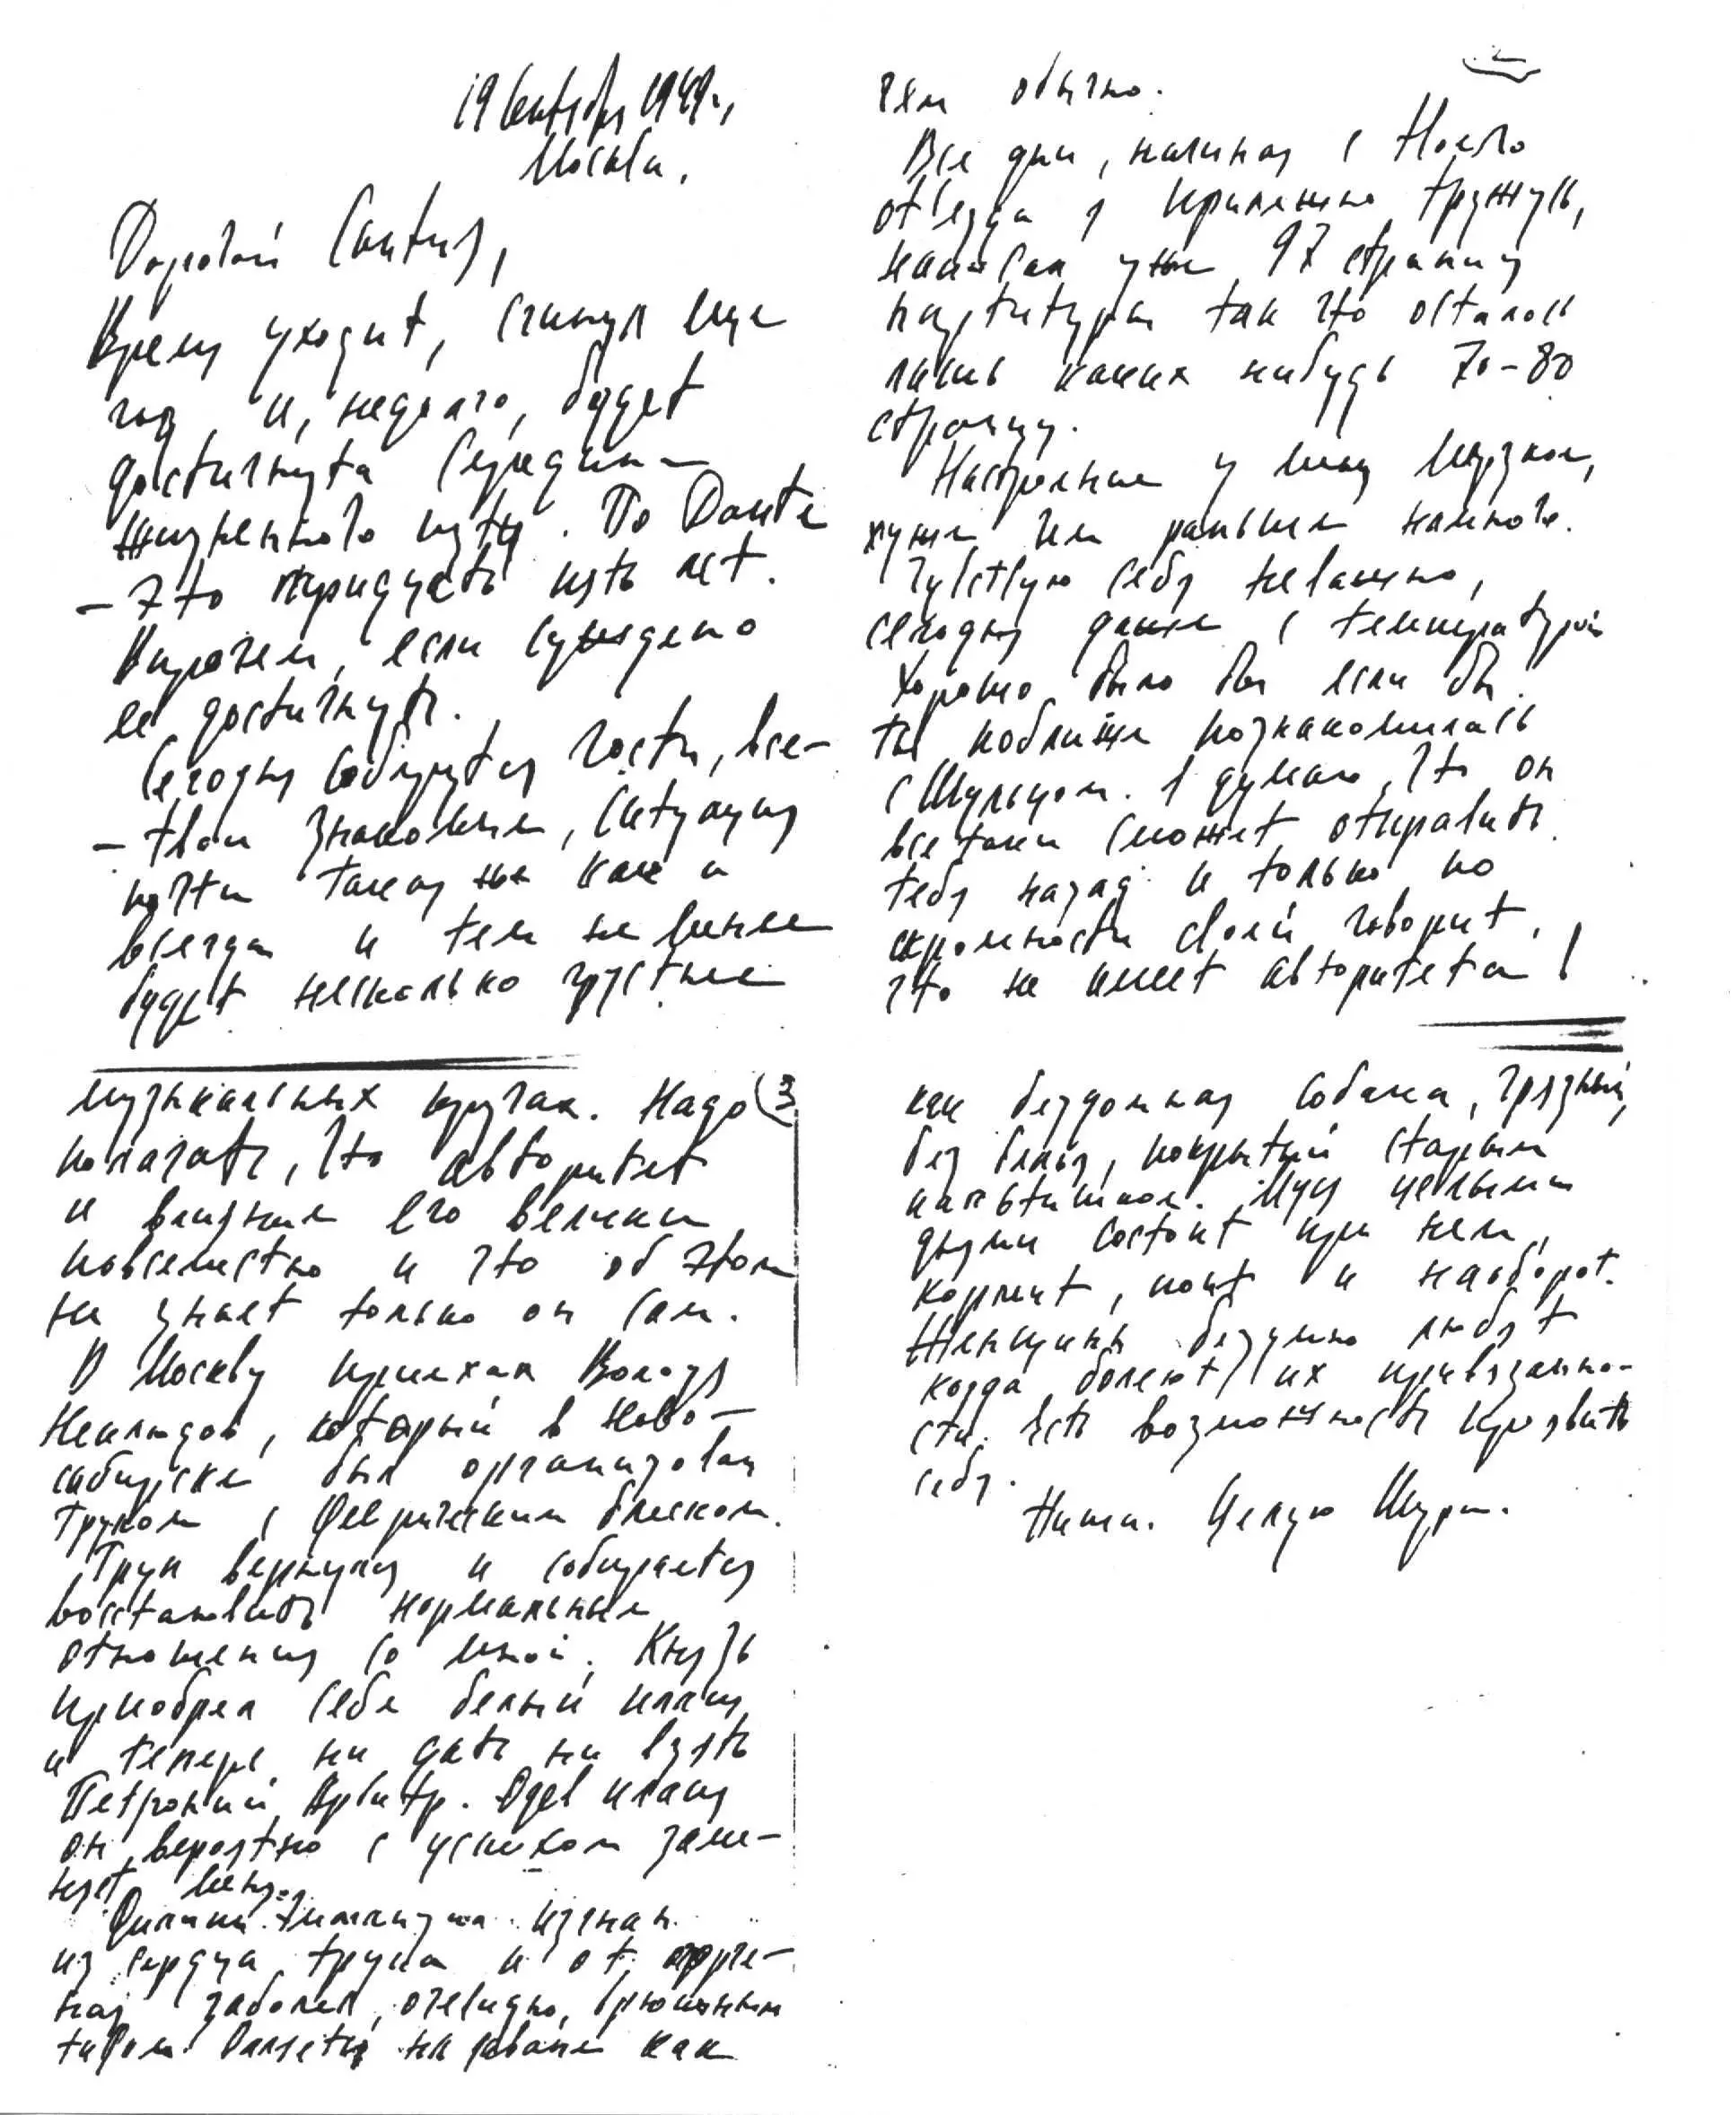 19 сентября 1949 г,
Москва.
Дорогой
Время уходит, сгинул еще
год и, недолго, будет
достигнута середина
жизненного пути. По Данте
– это тридцать пять лет.
Впрочем, если суждено
ее достигнуть.
Сегодня соберутся гости, все –
– твои знакомые, ситуация
почти такая же как и
всегда и тем не менее
будет несколько грустнее
2
чем обычно.
Все дни, начиная с
отъезда я прилежно тружусь,
написал уже 97 страниц
партитуры так что осталось
лишь каких нибудь 70–80
страниц.
Настроение у меня мерзкое,
хуже чем раньше намного.
Чувствую себя неважно,
сегодня даже с температурой
Хорошо было бы если бы
ты поближе познакомилась
с Шульцом. Я думаю, что он
все таки сможет отправить
тебя назад и только по
скромности своей говорит,
что не имеет авторитета в
музыкальных кругах. Надо (3
полагать, что авторитет
и влияние его велики
повсеместно и что об этом
не знает только он сам.
В Москву приехал Володя
Неклюдов, который в Ново–
сибирске был организован
Труком с феерическим блеском.
Трук вернулся и собирается
восстановить нормальные
отношения со мной. Князь
приобрел себе белый плащ
и теперь ни дать ни взять
Петроний Арбитр. Одев плащ
он, вероятно с успехом заме–
нит меня.
изгнан
из сердца Трука и от огорче–
ния заболел, очевидно, брюшным
тифом. Валяется на диване как
как бездомная собака, грязный,
без белья, покрытый старым
пальтишком. Муся целыми
днями состоит при нем,
кормит, поит и наоборот.
Женщины безумно любят
когда болеют их привязанно–
сти. Есть возможность проявить
себя.
Пиши. Целую Шура.